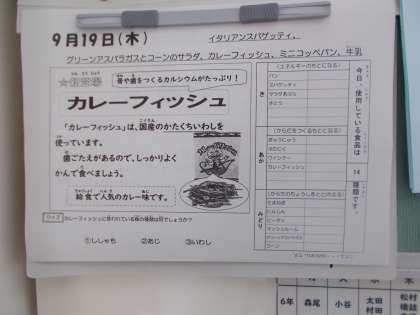 9月19日(木)
イタリアンスパゲッティ、
グリーンアスパラガスとコーンのサラダ、カレーフィッシュ、ミニコッペパン、牛乳
骨や歯をつくるカルシウムがたっぷり！
カレーフィッシュ
「カレーフィッシュ」は、国産のかたくちいわしを
使っています。
歯ごたえがあるので、しっかりよく
かんで食べましょう。
給食で人気のカレー味です。
クイズ
カレーフィッシュに使われている魚の種類は何でしょうか？
①ししゃも ②あじ ③いわし
今日、使用している食品は 14 種類です。
き
(エネルギーのもとになる)
パン
スパゲティ
マヨネーズ
さとう
あか
(からだをつくるもとになる)
ぎゅうにゅう
ウインナー
カレーフィッシュ
みどり
(からだのちょうしをととのえる)
たまねぎ
にんじん
ピーマン
マッシュルーム
グリーンアスパラガス
コーン
6年
森尾
小谷
太田
村田
松村